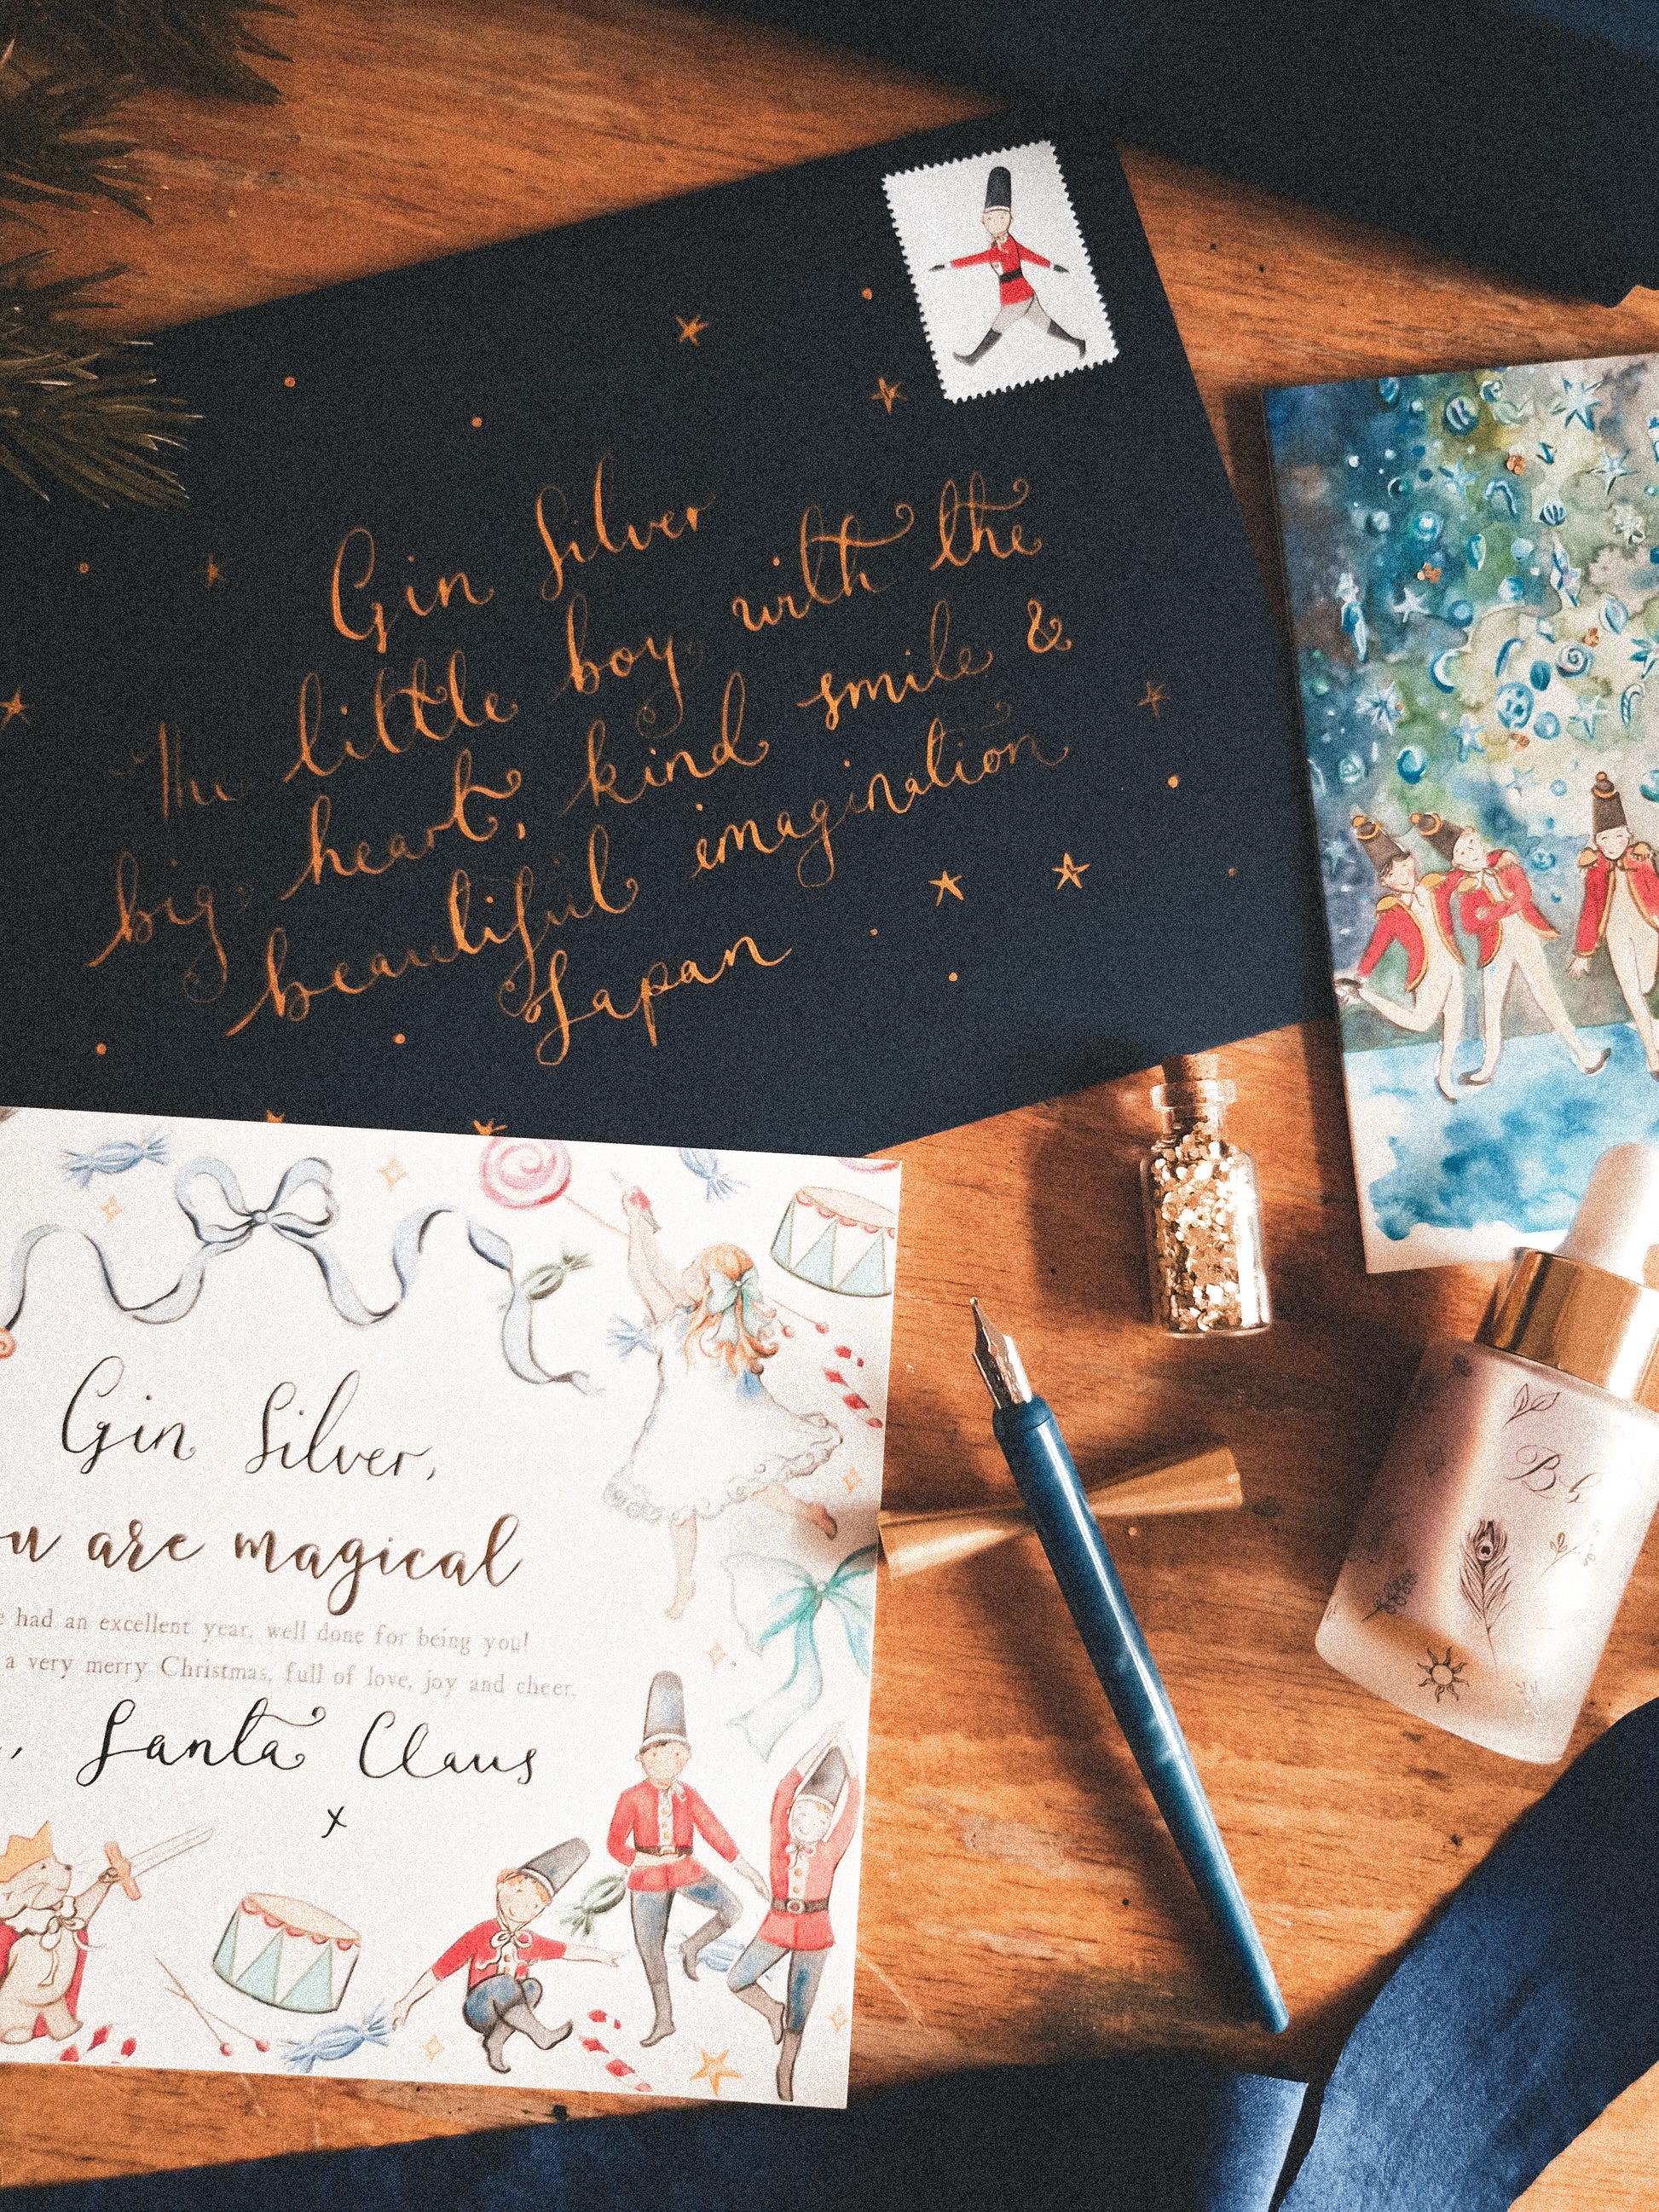 Gin Silver
The little boy with the
big heart, kind smile &
beautiful imagination
Japan
Gin Silver,
u are magical
e had an excellent year, well done for being you!
a very merry Christmas, full of love, joy and cheer.
, Santa Claus
x